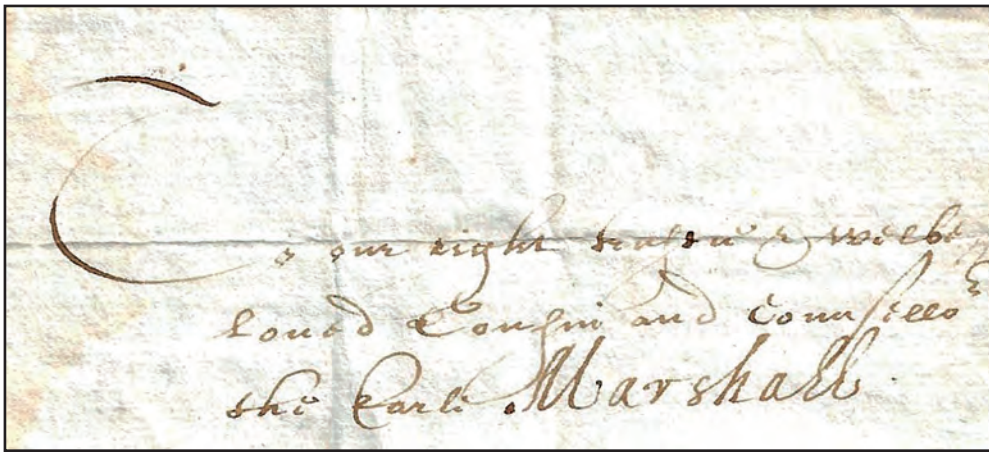 To our right trusty & welbe
loued Cousin and Counsello^r
the Earle Marshall